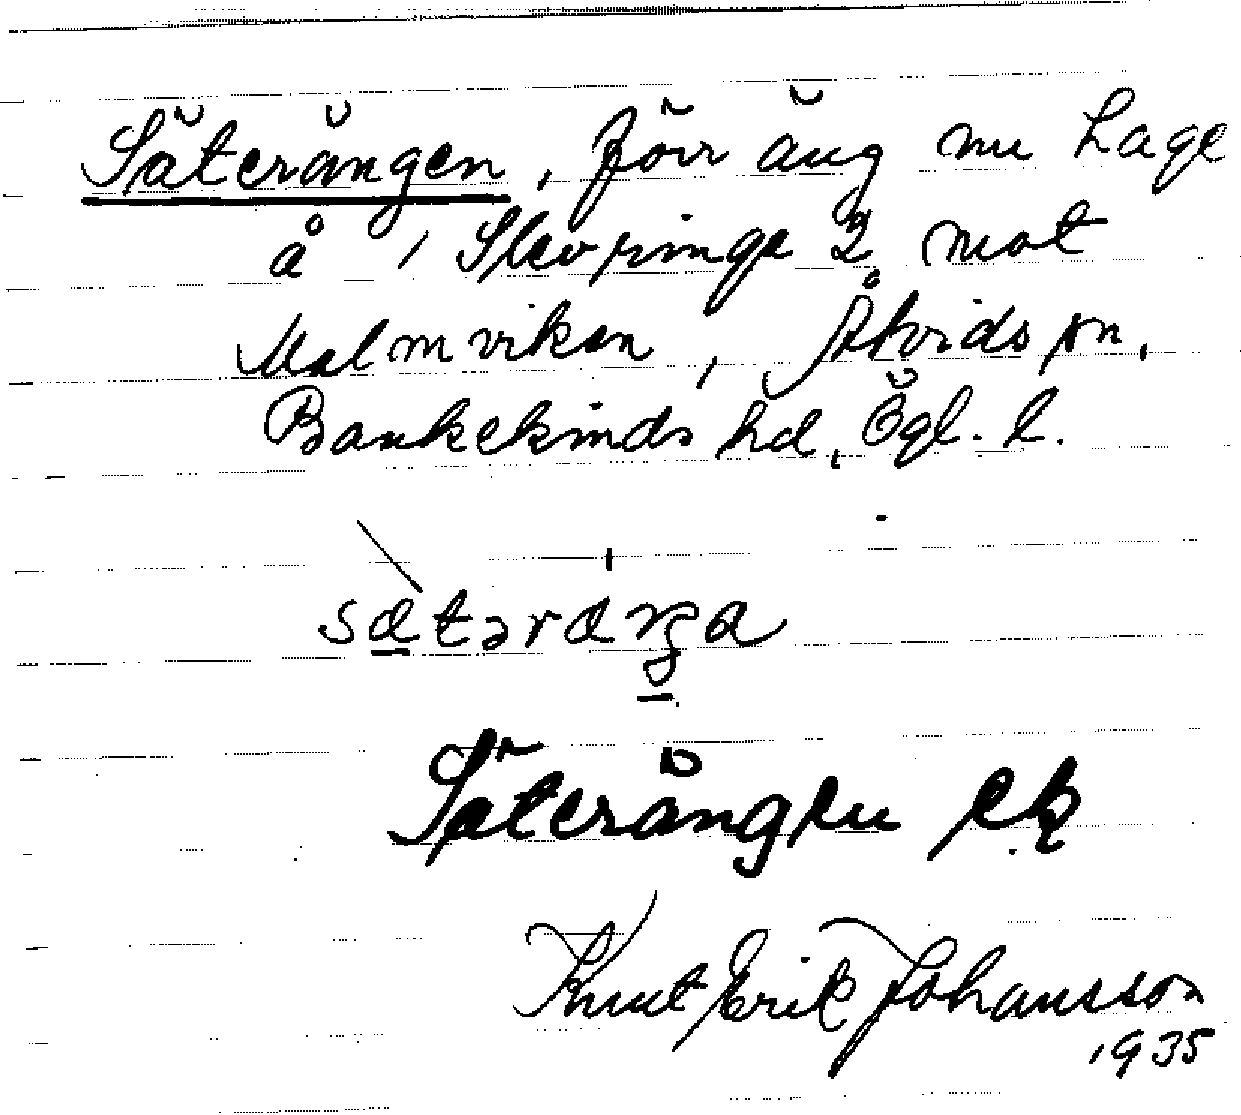 Säterängen, förr äng nu hage
å 1 Slevringe 2 mot
Malmviken, Åtvids sn,
Bankekinds hd, Ögl. l.
sätəräŋa
Säterängen ek
Knut Erik Johansson
1935